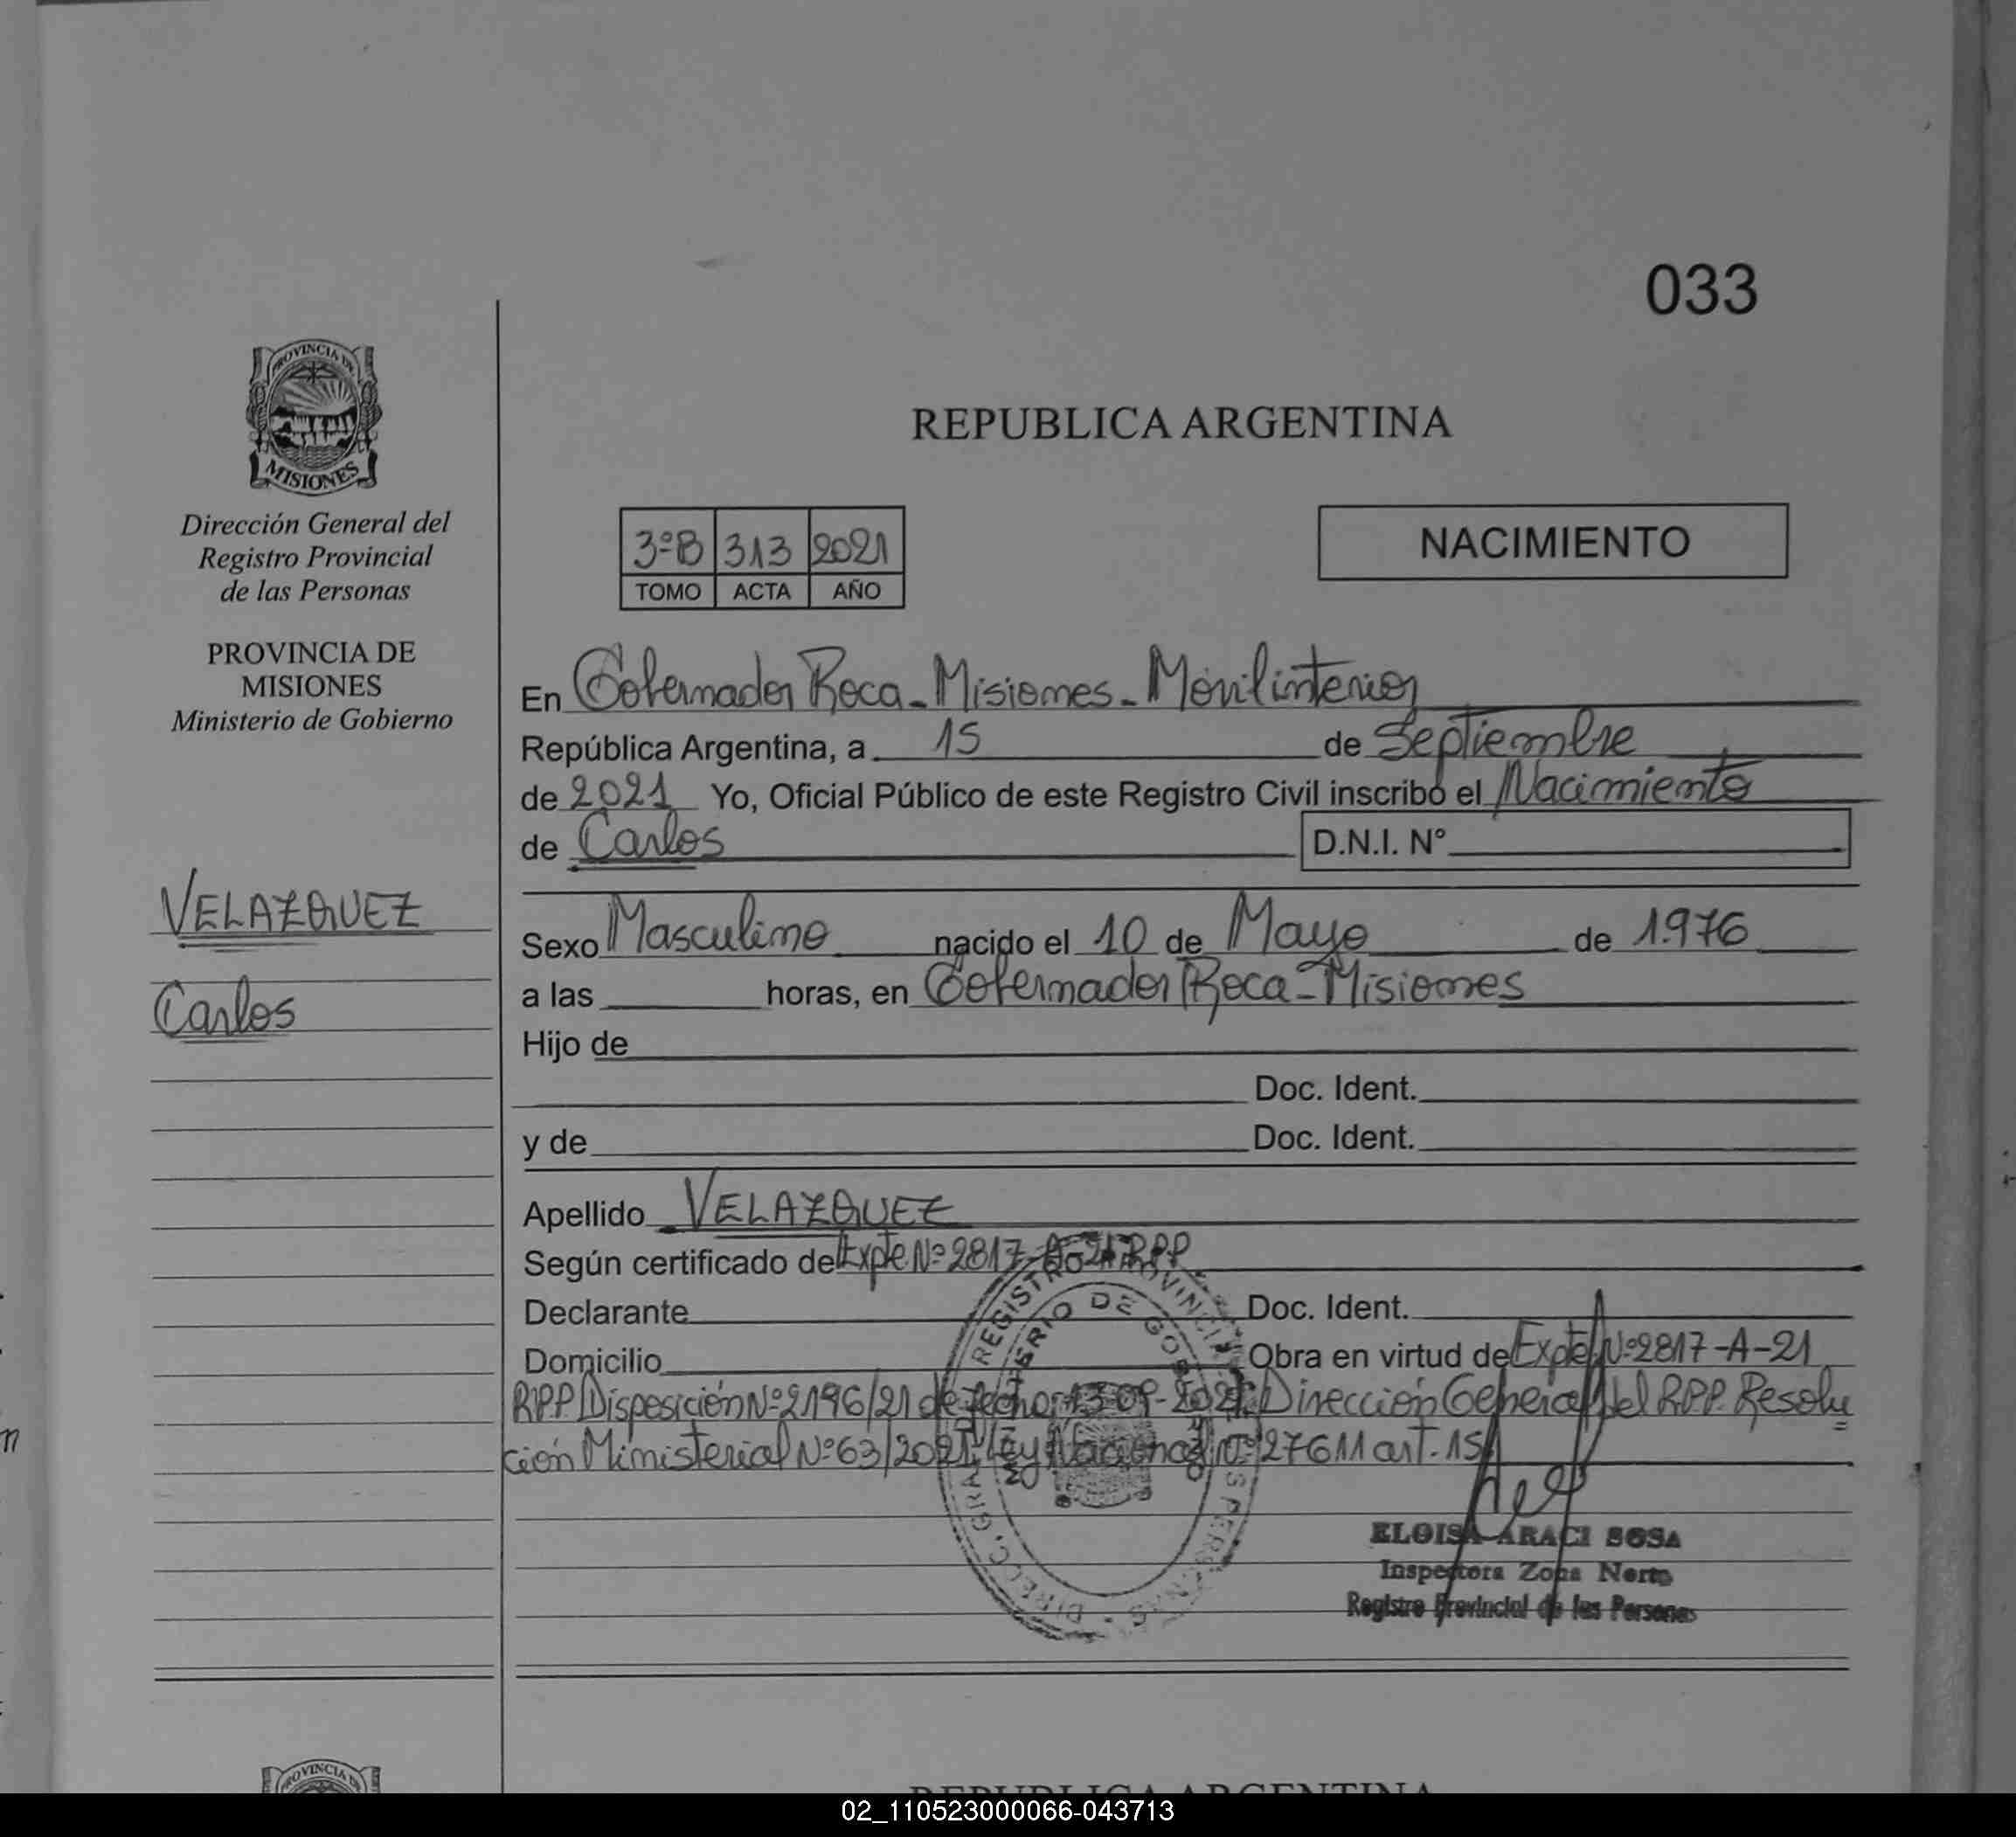 033
PROVINCIA DE
MISIONES
Dirección General del
Registro Provincial
de las Personas
PROVINCIA DE
MISIONES
Ministerio de Gobierno
VELAZQUEZ
Carlos
REPUBLICA ARGENTINA
3ºB 313 2021
TOMO ACTA AÑO
NACIMIENTO
En Gobernador Roca - Misiones - Móvil interior
República Argentina, a 15 de Septiembre
de 2021 Yo, Oficial Público de este Registro Civil inscribo el Nacimiento
de Carlos D.N.I. Nº
Sexo Masculino nacido el 10 de Mayo de 1976
a las horas, en Gobernador Roca - Misiones
Hijo de
Doc. Ident.
y de Doc. Ident.
Apellido VELAZQUEZ
Según certificado de Expte Nº 2817-A-21 RPP
Declarante Doc. Ident.
Domicilio Obra en virtud de Expte Nº 2817-A-21
RPP. Disposición Nº 2196/21 de fecha 13-09-2021. Dirección General del RPP. Resolu
ción Ministerial Nº 63/2021. Ley Nacional nº 27611 art. 15
ELOISA ARACI SOSA
Inspectora Zona Norte
Registro Provincial de las Personas
PROVINCIA DE
REPUBLICA ARGENTINA
02_110523000066-043713